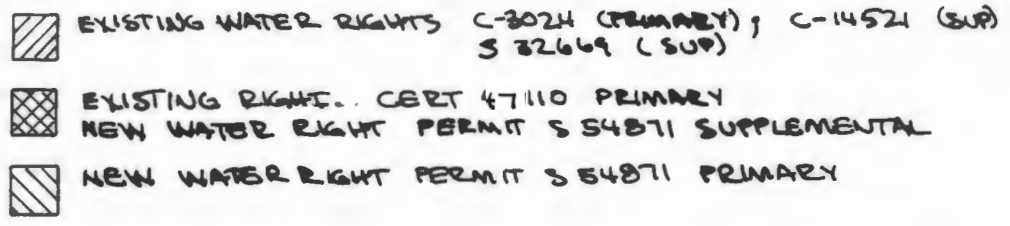 EXISTING WATER RIGHTS C-3024 (PRIMARY); C-14521 (SUP)
S 32669 (SUP)
EXISTING RIGHT.. CERT 47110 PRIMARY
NEW WATER RIGHT PERMIT S 54871 SUPPLEMENTAL
NEW WATER RIGHT PERMIT S 54871 PRIMARY